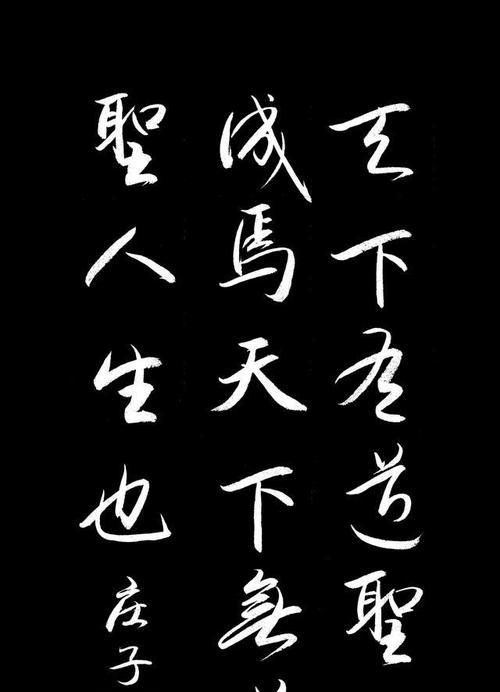 天下有道聖
成焉天下無
聖人生也
庄子